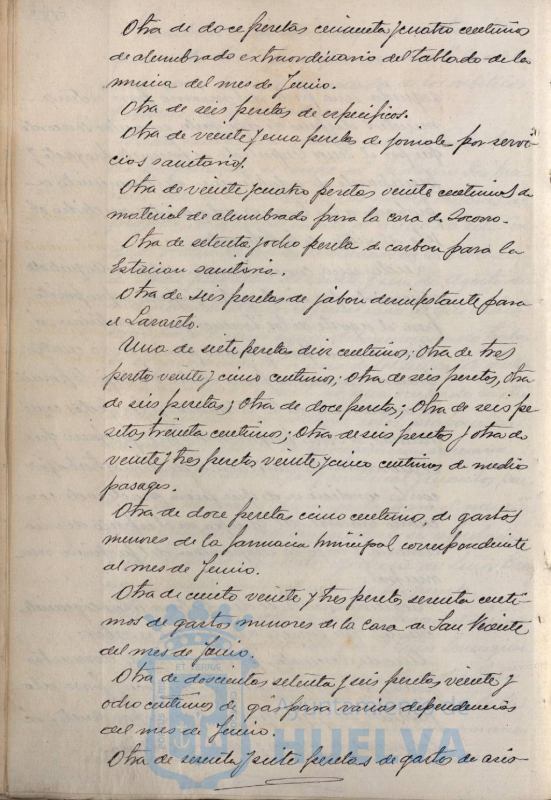 Otra de doce pesetas cincuenta y cuatro centimos
de alumbrado extraordinario del tablado de la
musica del mes de Junio.
Otra de seis pesetas de especificos.
Otra de veinte y una pesetas de jornale por servi-
cios sanitarios.
Otra de veinte y cuatro pesetas veinte centimos de
material de alumbrado para la casa de Socorro.
Otra de setenta y ocho peseta de carbon para la
Estacion sanitaria.
Otra de seis pesetas de jabon desinfestante para
el Lazareto.
Una de siete pesetas diez centimos; Otra de tres
pesetas veinte y cinco centimos; Otra de seis pesetas, otra
de seis pesetas; Otra de doce pesetas; Otra de seis pe-
setas treinta centimos; Otra de seis pesetas y otra de
veinte y tres pesetas veinte y cinco centimos de medio
pasages.
Otra de doce pesetas cinco centimos, de gastos
menores de la farmacia municipal correspondiente
al mes de Junio.
Otra de ciento veinte y tres pesetas sesenta centi-
mos de gastos menores de la casa de San Vicente
del mes de Junio.
Otra de doscientas setenta y seis pesetas veinte y
ocho centimos de gas para varias dependencias
del mes de Junio.
HUELVA
Otra de sesenta y siete pesetas de gastos de aseo